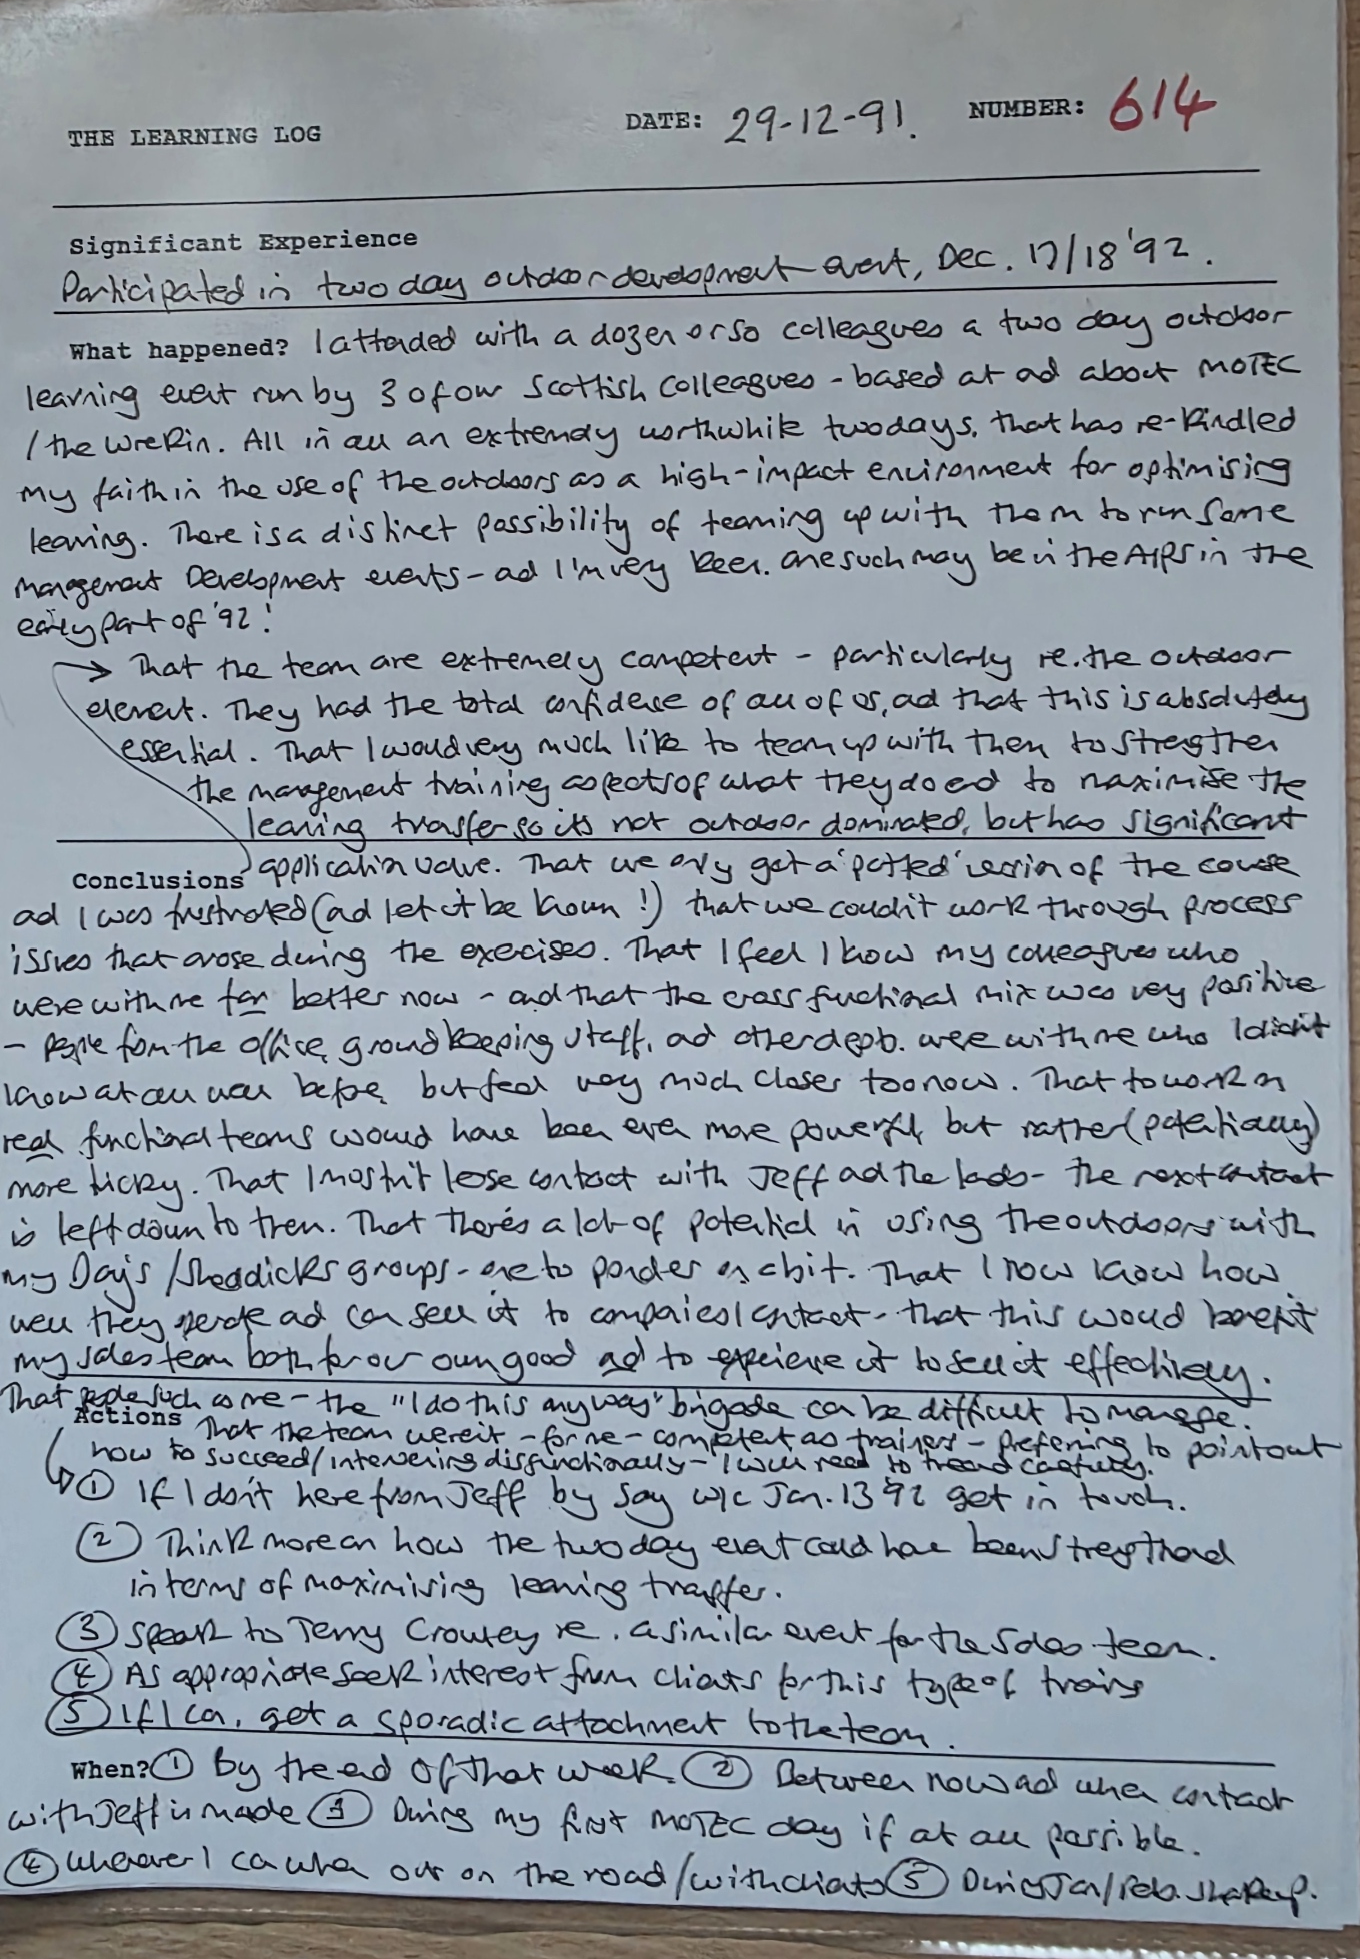 THE LEARNING LOG DATE: 29-12-91. NUMBER: 614
Significant Experience
Participated in two day outdoor development event, Dec. 17/18 '92.
What happened? I attended with a dozen or so colleagues a two day outdoor
learning event run by 3 of our Scottish colleagues - based at and about MOTEC
/ the Wrekin. All in all an extremely worthwhile two days, that has re-kindled
my faith in the use of the outdoors as a high-impact environment for optimising
learning. There is a distinct possibility of teaming up with them to run some
Management Development events - and I'm very keen. One such may be in the AIPS in the
early part of '92!
→ That the team are extremely competent - particularly re. the outdoor
element. They had the total confidence of all of us, and that this is absolutely
essential. That I would very much like to team up with them to strengthen
the management training aspects of what they do and to maximise the
learning transfer so its not outdoor dominated, but has significant
Conclusions application value. That we only got a 'potted' version of the course
and I was frustrated (and let it be known!) that we couldn't work through process
issues that arose during the exercises. That I feel I know my colleagues who
were with me far better now - and that the cross functional mix was very positive
- people from the office, ground keeping staff, and other depts. were with me who I didn't
know at all well before, but feel very much closer too now. That to work in
real functional teams would have been even more powerful, but rather (potentially)
more tricky. That I mustn't lose contact with Jeff and the lads - the next contact
is left down to them. That there's a lot of potential in using the outdoors with
my Days / Shaddicks groups - one to ponder on a bit. That I now know how
well they operate and can sell it to companies I contact - that this would benefit
my sales team both for our own good and to experience it to sell it effectively.
That people such as me - the "I do this my way" brigade can be difficult to manage.
Actions That the team weren't - for me - competent as trainers - preferring to point out
how to succeed / intervening disfunctionally - I will need to tread carefully.
① If I don't here from Jeff by say w/c Jan. 13 '92 get in touch.
② Think more on how the two day event could have been strengthened
in terms of maximising learning transfer.
③ Speak to Terry Croutey re. a similar event for the Sales team.
④ As appropriate seek interest from clients for this type of training
⑤ If I can, get a sporadic attachment to the team.
When? ① By the end of that week. ② Between now and when contact
with Jeff is made ③ During my first MOTEC day if at all possible.
④ Whenever I can when out on the road / with clients ⑤ During Jan / Feb. shakeup.